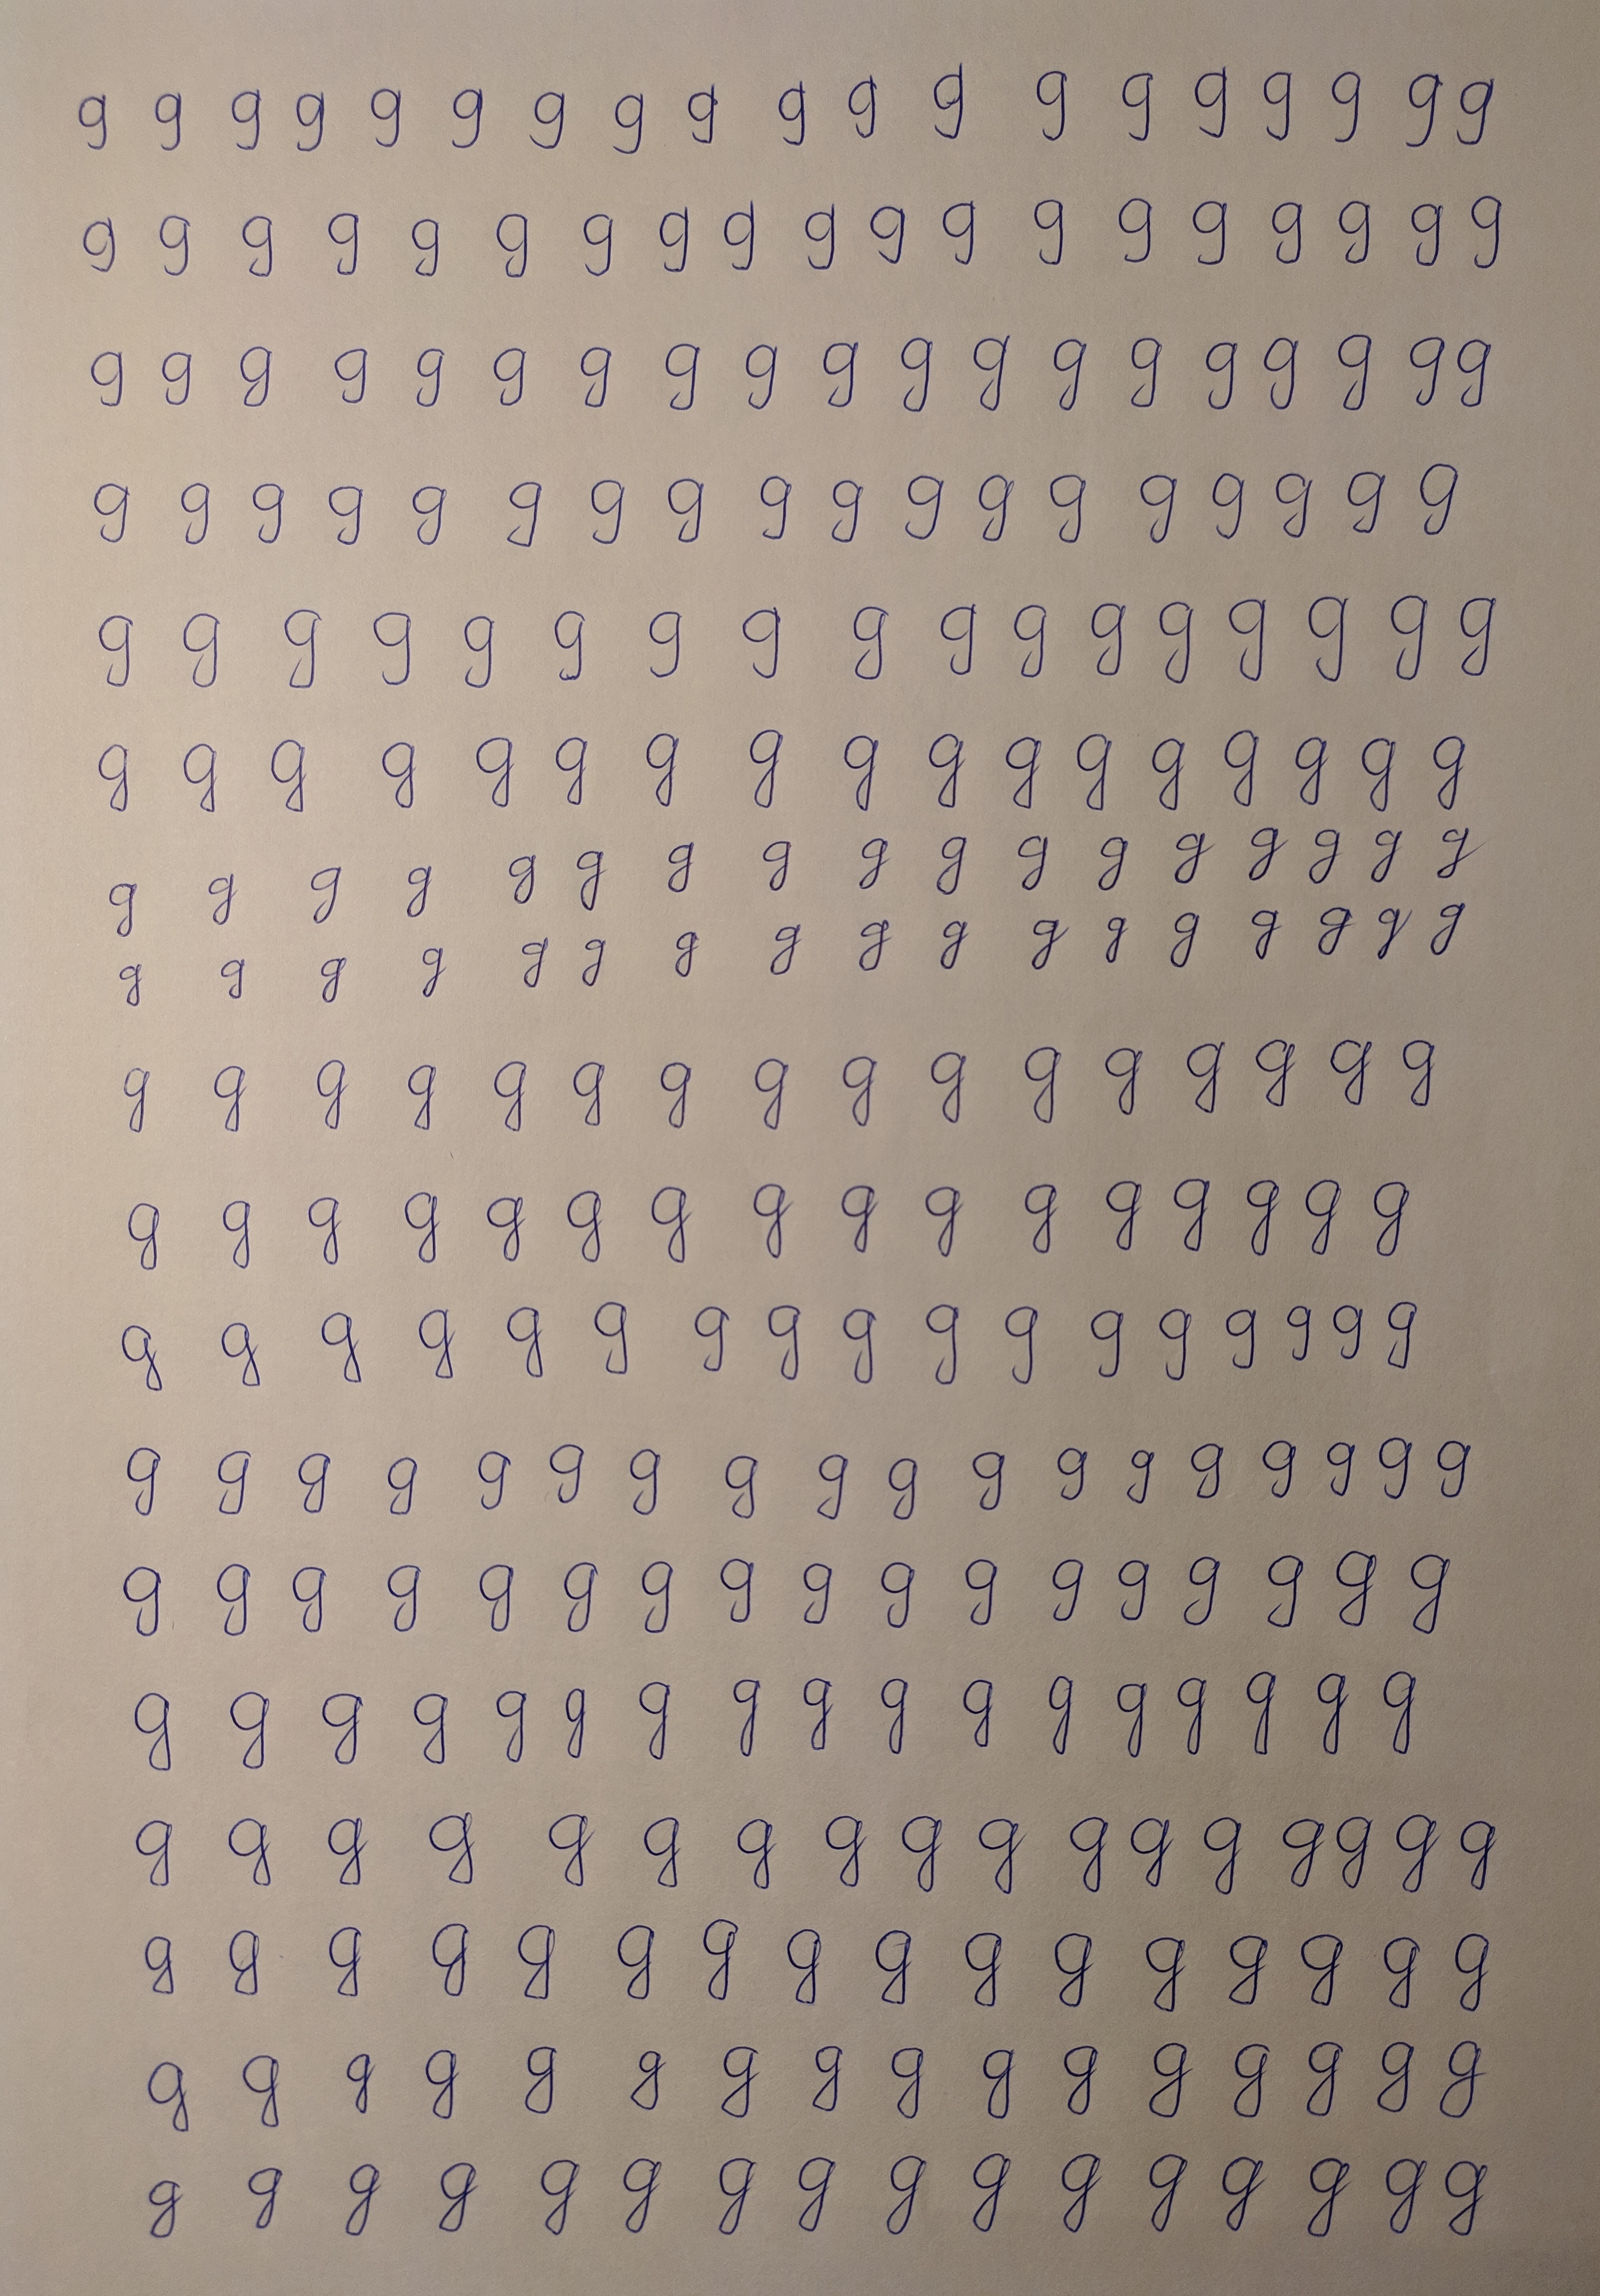 g g g g g g g g g g g g g g g g g g g
g g g g g g g g g g g g g g g g g g g
g g g g g g g g g g g g g g g g g g g
g g g g g g g g g g g g g g g g g g
g g g g g g g g g g g g g g g g g
g g g g g g g g g g g g g g g g g
g g g g g g g g g g g g g g g g g
g g g g g g g g g g g g g g g g g
g g g g g g g g g g g g g g g g
g g g g g g g g g g g g g g g g
g g g g g g g g g g g g g g g g g
g g g g g g g g g g g g g g g g g g
g g g g g g g g g g g g g g g g g
g g g g g g g g g g g g g g g g g
g g g g g g g g g g g g g g g g g
g g g g g g g g g g g g g g g g
g g g g g g g g g g g g g g g g
g g g g g g g g g g g g g g g g